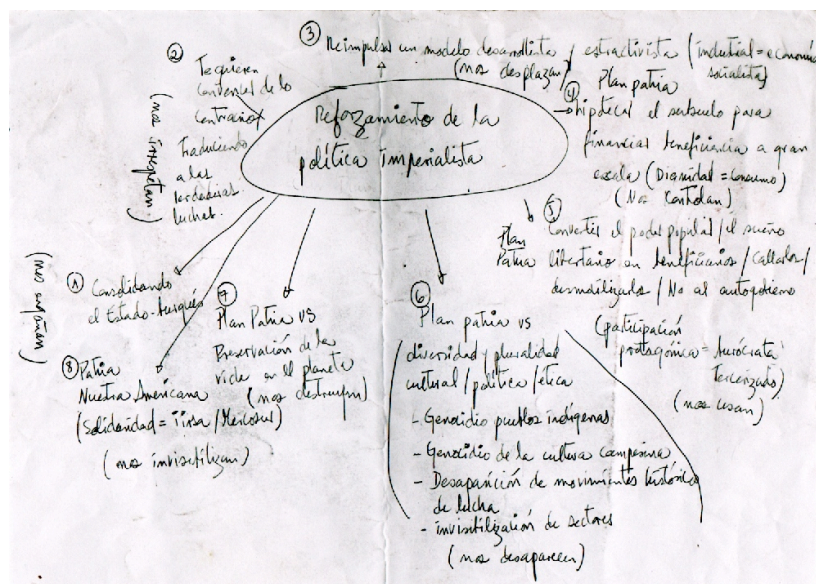 ③ Reimpulsar un modelo desarrollista / extractivista (industrial = economía
socialista)
(nos desplazan)
②
convencer de lo
contrario
Traduciendo
a las
verdaderas
luchas.
(nos irrespetan)
Reforzamiento de la
política imperialista
④ Plan patria
hipotecar el subsuelo para
financiar beneficiencia a gran
escala (Dignidad = Consumo)
(Nos controlan)
⑤ Plan Patria
Convertir el poder popular / el sueño
libertario en beneficiarios / Callados /
desmovilizados / No al autogobierno
(participación
protagónica = burócrata
tercerizado)
(nos usan)
① Consolidando
el Estado-burgués
(nos engañan)
⑧ Patria
Nuestra Americana
(Solidaridad = iirsa / Mercosur)
(nos invisibilizan)
⑦
Plan Patria vs
Preservación de la
vida en el planeta
(nos destruyen)
⑥
Plan patria vs
diversidad y pluralidad
cultural / política / ética
- Genocidio pueblos indígenas
- Genocidio de la cultura campesina
- Desaparición de movimientos históricos
de lucha
- invisibilización de sectores
(nos desaparecen)